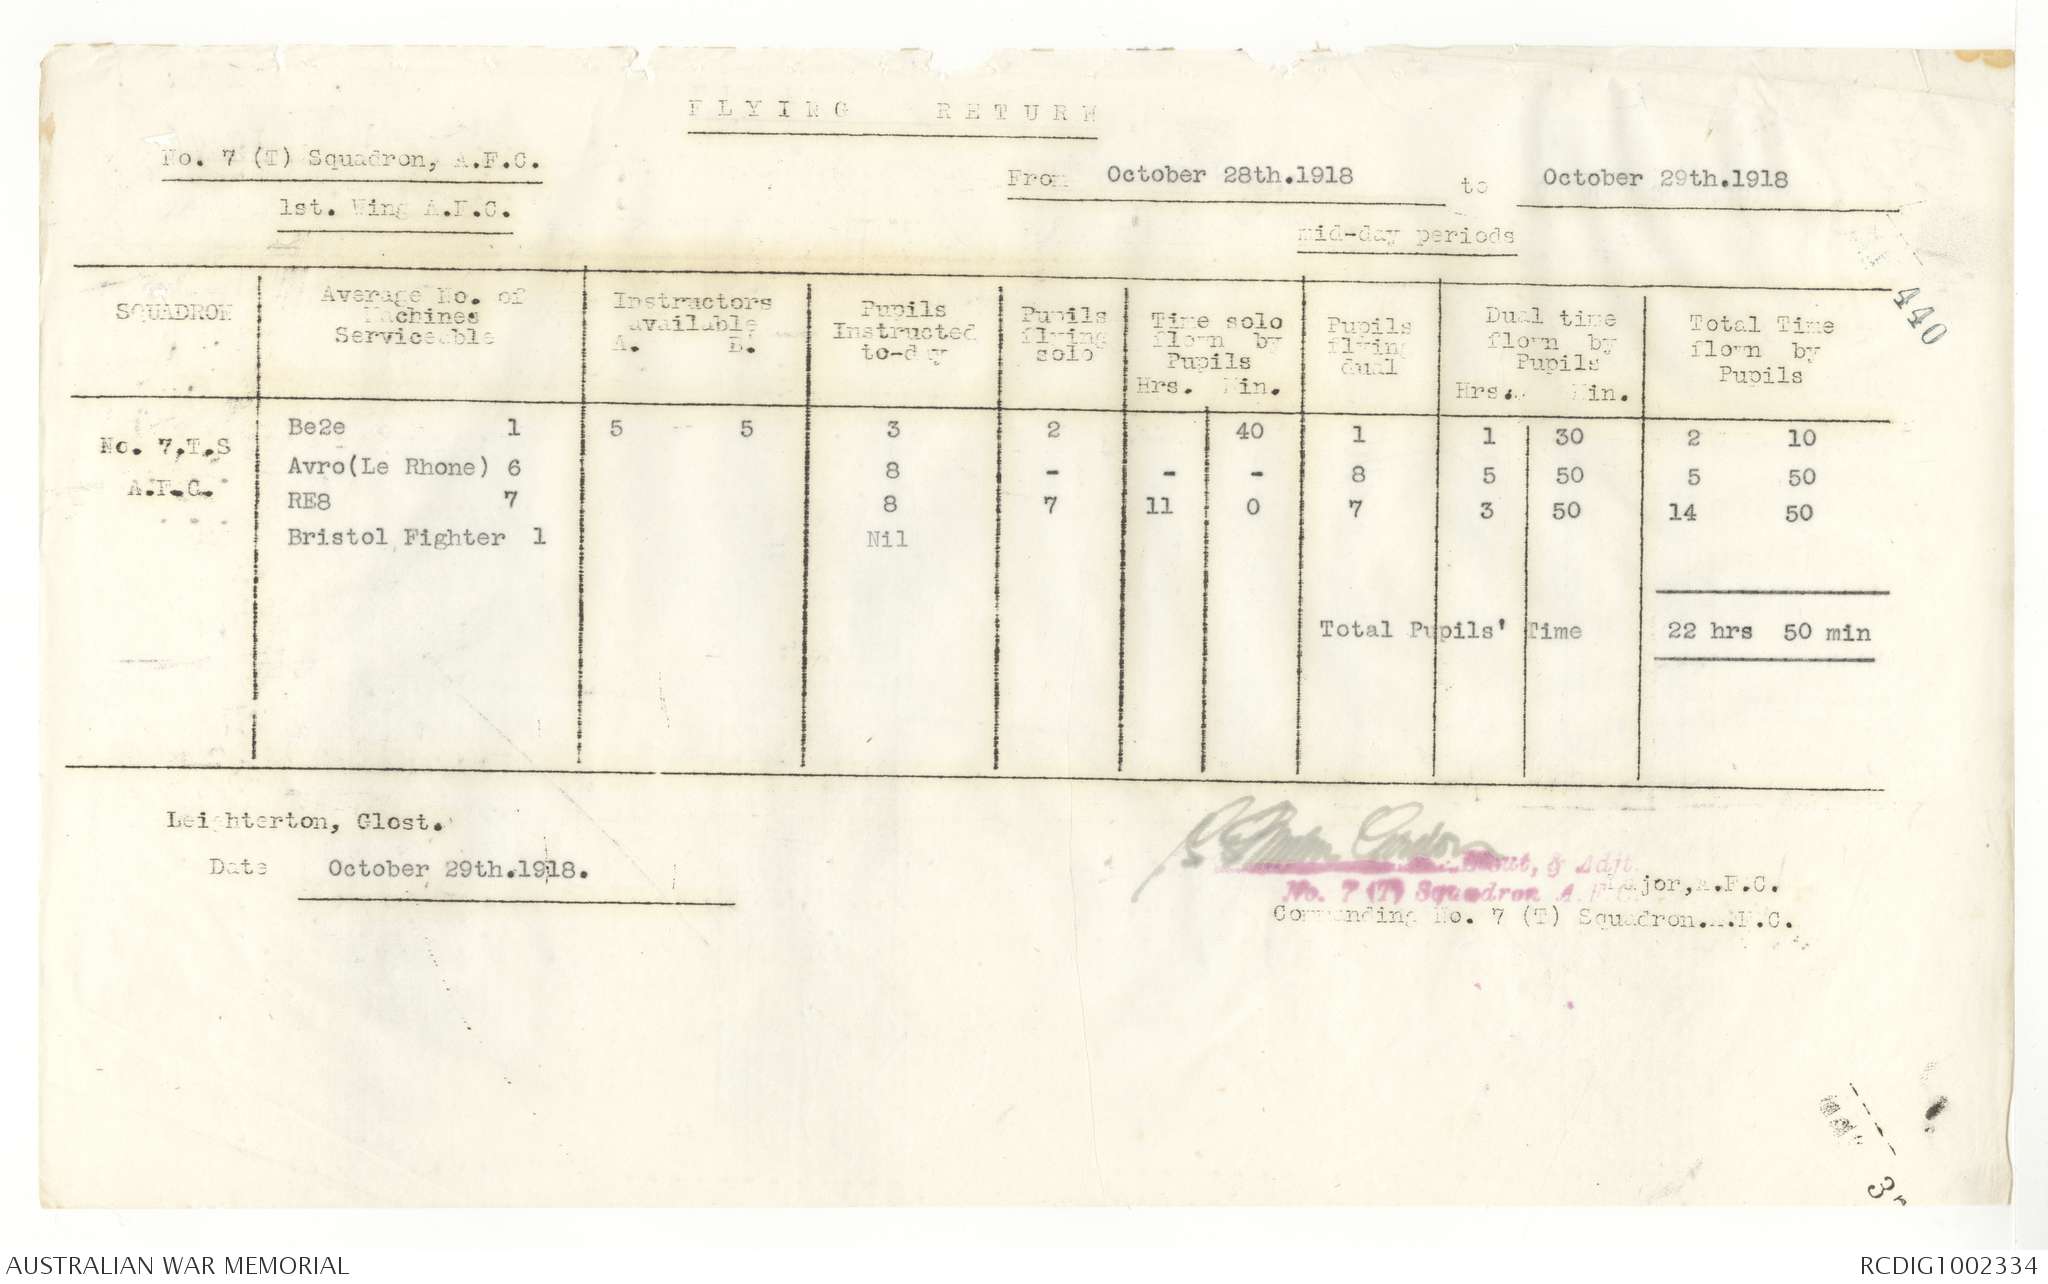 FLYING RETURN
No. 7 (T) Squadron, A.F.C.
1st. Wing A.F.C.
From October 28th.1918 to October 29th.1918
mid-day periods
440
SQUADRON
Average No. of
Machines
Serviceable
Instructors
available
A. B.
Pupils
Instructed
to-day
Pupils
flying
solo
Time solo
flown by
Pupils
Hrs. Min.
Pupils
flying
dual
Dual time
flown by
Pupils
Hrs. Min.
Total Time
flown by
Pupils
No. 7,T.S
A.F.C.
Be2e 1 5 5 3 2 40 1 1 30 2 10
Avro(Le Rhone) 6 8 - - - 8 5 50 5 50
RE8 7 8 7 11 0 7 3 50 14 50
Bristol Fighter 1 Nil
Total Pupils' Time 22 hrs 50 min
Leighterton, Glost.
Date October 29th.1918.
Lieut, & Adjt.
No. 7 (T) Squadron A.F.C.
Major, A.F.C.
Commanding No. 7 (T) Squadron.A.F.C.
AUSTRALIAN WAR MEMORIAL
RCDIG1002334